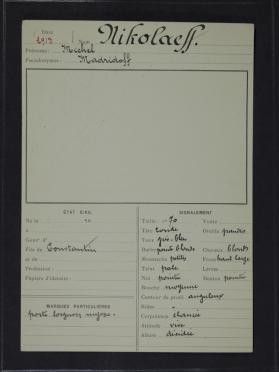 Nikolaeff.
1912
Prénoms: Michel
Pseudonymes: Madridoff
ÉTAT CIVIL
Né le
Canton d
Fils de Constantin
et de
Profession:
Papiers d'identité:
MARQUES PARTICULIÈRES
porte lorgnon myope.
SIGNALEMENT
Taille: 1 70 Voûte
Tête ronde Oreille grandes
Yeux gris-bleu
Barbe pointe blonde Cheveux blonds
Moustache petite Front haut large
Teint pale Lèvres
Nez pointu Menton pointu
Bouche moyenne
Contour du profil anguleux
Rides
Corpulence élancée
Attitude vive
Allure décidée